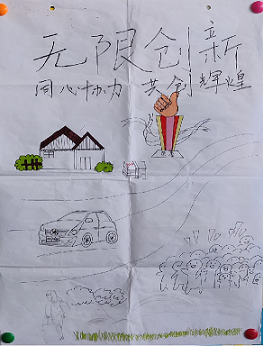 无限创新
同心协力 共创辉煌